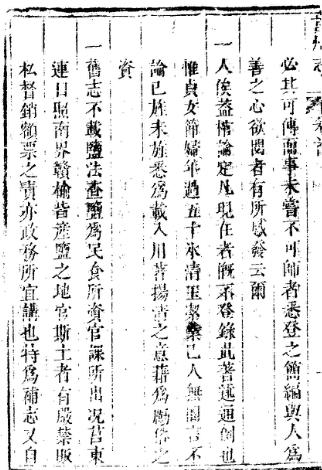 必其可傳而事末嘗不可師者悉登之簡編與人爲
善之心欲閱者有所感發云爾
一人俟蓋棺論定凡現在者槪不登錄此著述通例也
惟貞女節婦年過五十氷淸玉潔槩已人無閒言不
論已旌未旌悉爲載入用著揚淸之意藉爲勸俗之
資
一舊志不載鹽法查鹽爲民食所資官課所出况莒東
連日照南界贛榆皆產鹽之地官斯土者有嚴禁販
私督銷額票之責亦政務所宜講也特爲補志又自